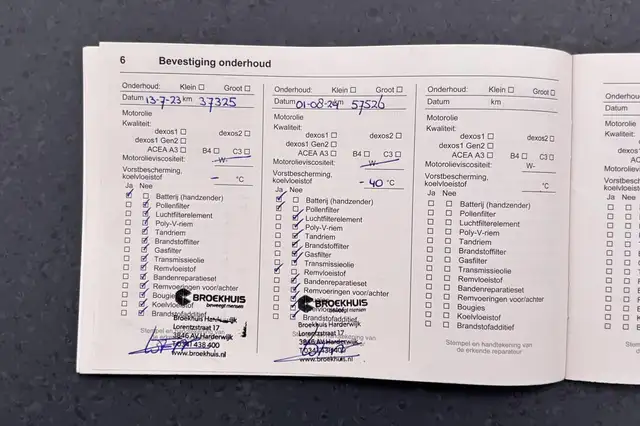 6 Bevestiging onderhoud
Onderhoud: Klein Groot
Datum 13-7-23 km 37325
Motorolie
Kwaliteit:
dexos1 dexos2
dexos1 Gen2
ACEA A3 B4 C3
Motorolieviscositeit: W-
Vorstbescherming,
koelvloeistof - °C
Ja Nee
Batterij (handzender)
Pollenfilter
Luchtfilterelement
Poly-V-riem
Tandriem
Brandstoffilter
Gasfilter
Transmissieolie
Remvloeistof
Bandenreparatieset
Remvoeringen voor/achter
Bougies
Koelvloeistof
Brandstofadditief
BROEKHUIS
beweegt mensen
Broekhuis Harderwijk
Lorentzstraat 17
3846 AV Harderwijk
T 0341 438 400
www.broekhuis.nl
Onderhoud: Klein Groot
Datum 01-08-24 km 57526
Motorolie
Kwaliteit:
dexos1 dexos2
dexos1 Gen2
ACEA A3 B4 C3
Motorolieviscositeit: W-
Vorstbescherming,
koelvloeistof -40 °C
Ja Nee
Batterij (handzender)
Pollenfilter
Luchtfilterelement
Poly-V-riem
Tandriem
Brandstoffilter
Gasfilter
Transmissieolie
Remvloeistof
Bandenreparatieset
Remvoeringen voor/achter
BROEKHUIS
beweegt mensen
Brandstofadditief
Broekhuis Harderwijk
Lorentzstraat 17
3846 AV Harderwijk
T 0341 438 400
www.broekhuis.nl
Onderhoud: Klein Groot
Datum km
Motorolie
Kwaliteit:
dexos1 dexos2
dexos1 Gen2
ACEA A3 B4 C3
Motorolieviscositeit: W-
Vorstbescherming,
koelvloeistof °C
Ja Nee
Batterij (handzender)
Pollenfilter
Luchtfilterelement
Poly-V-riem
Tandriem
Brandstoffilter
Gasfilter
Transmissieolie
Remvloeistof
Bandenreparatieset
Remvoeringen voor/achter
Bougies
Koelvloeistof
Brandstofadditief
Stempel en handtekening van
de erkende reparateur